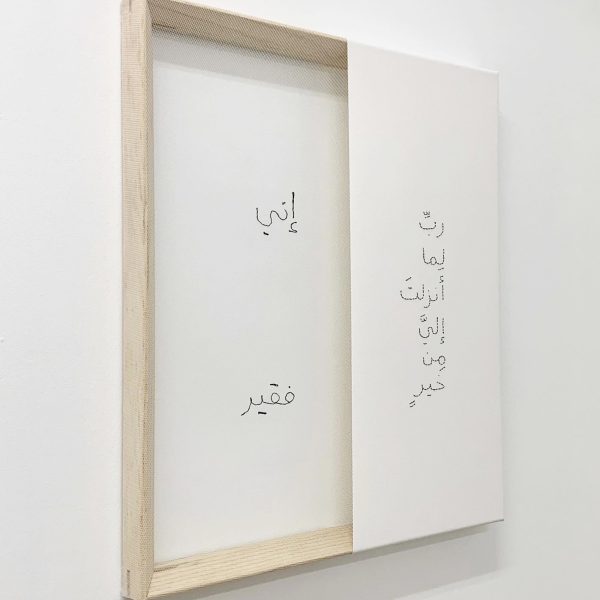 ربِّ
لِما
أنزلتَ
إليَّ
مِن
خيرٍ
إني
فقير